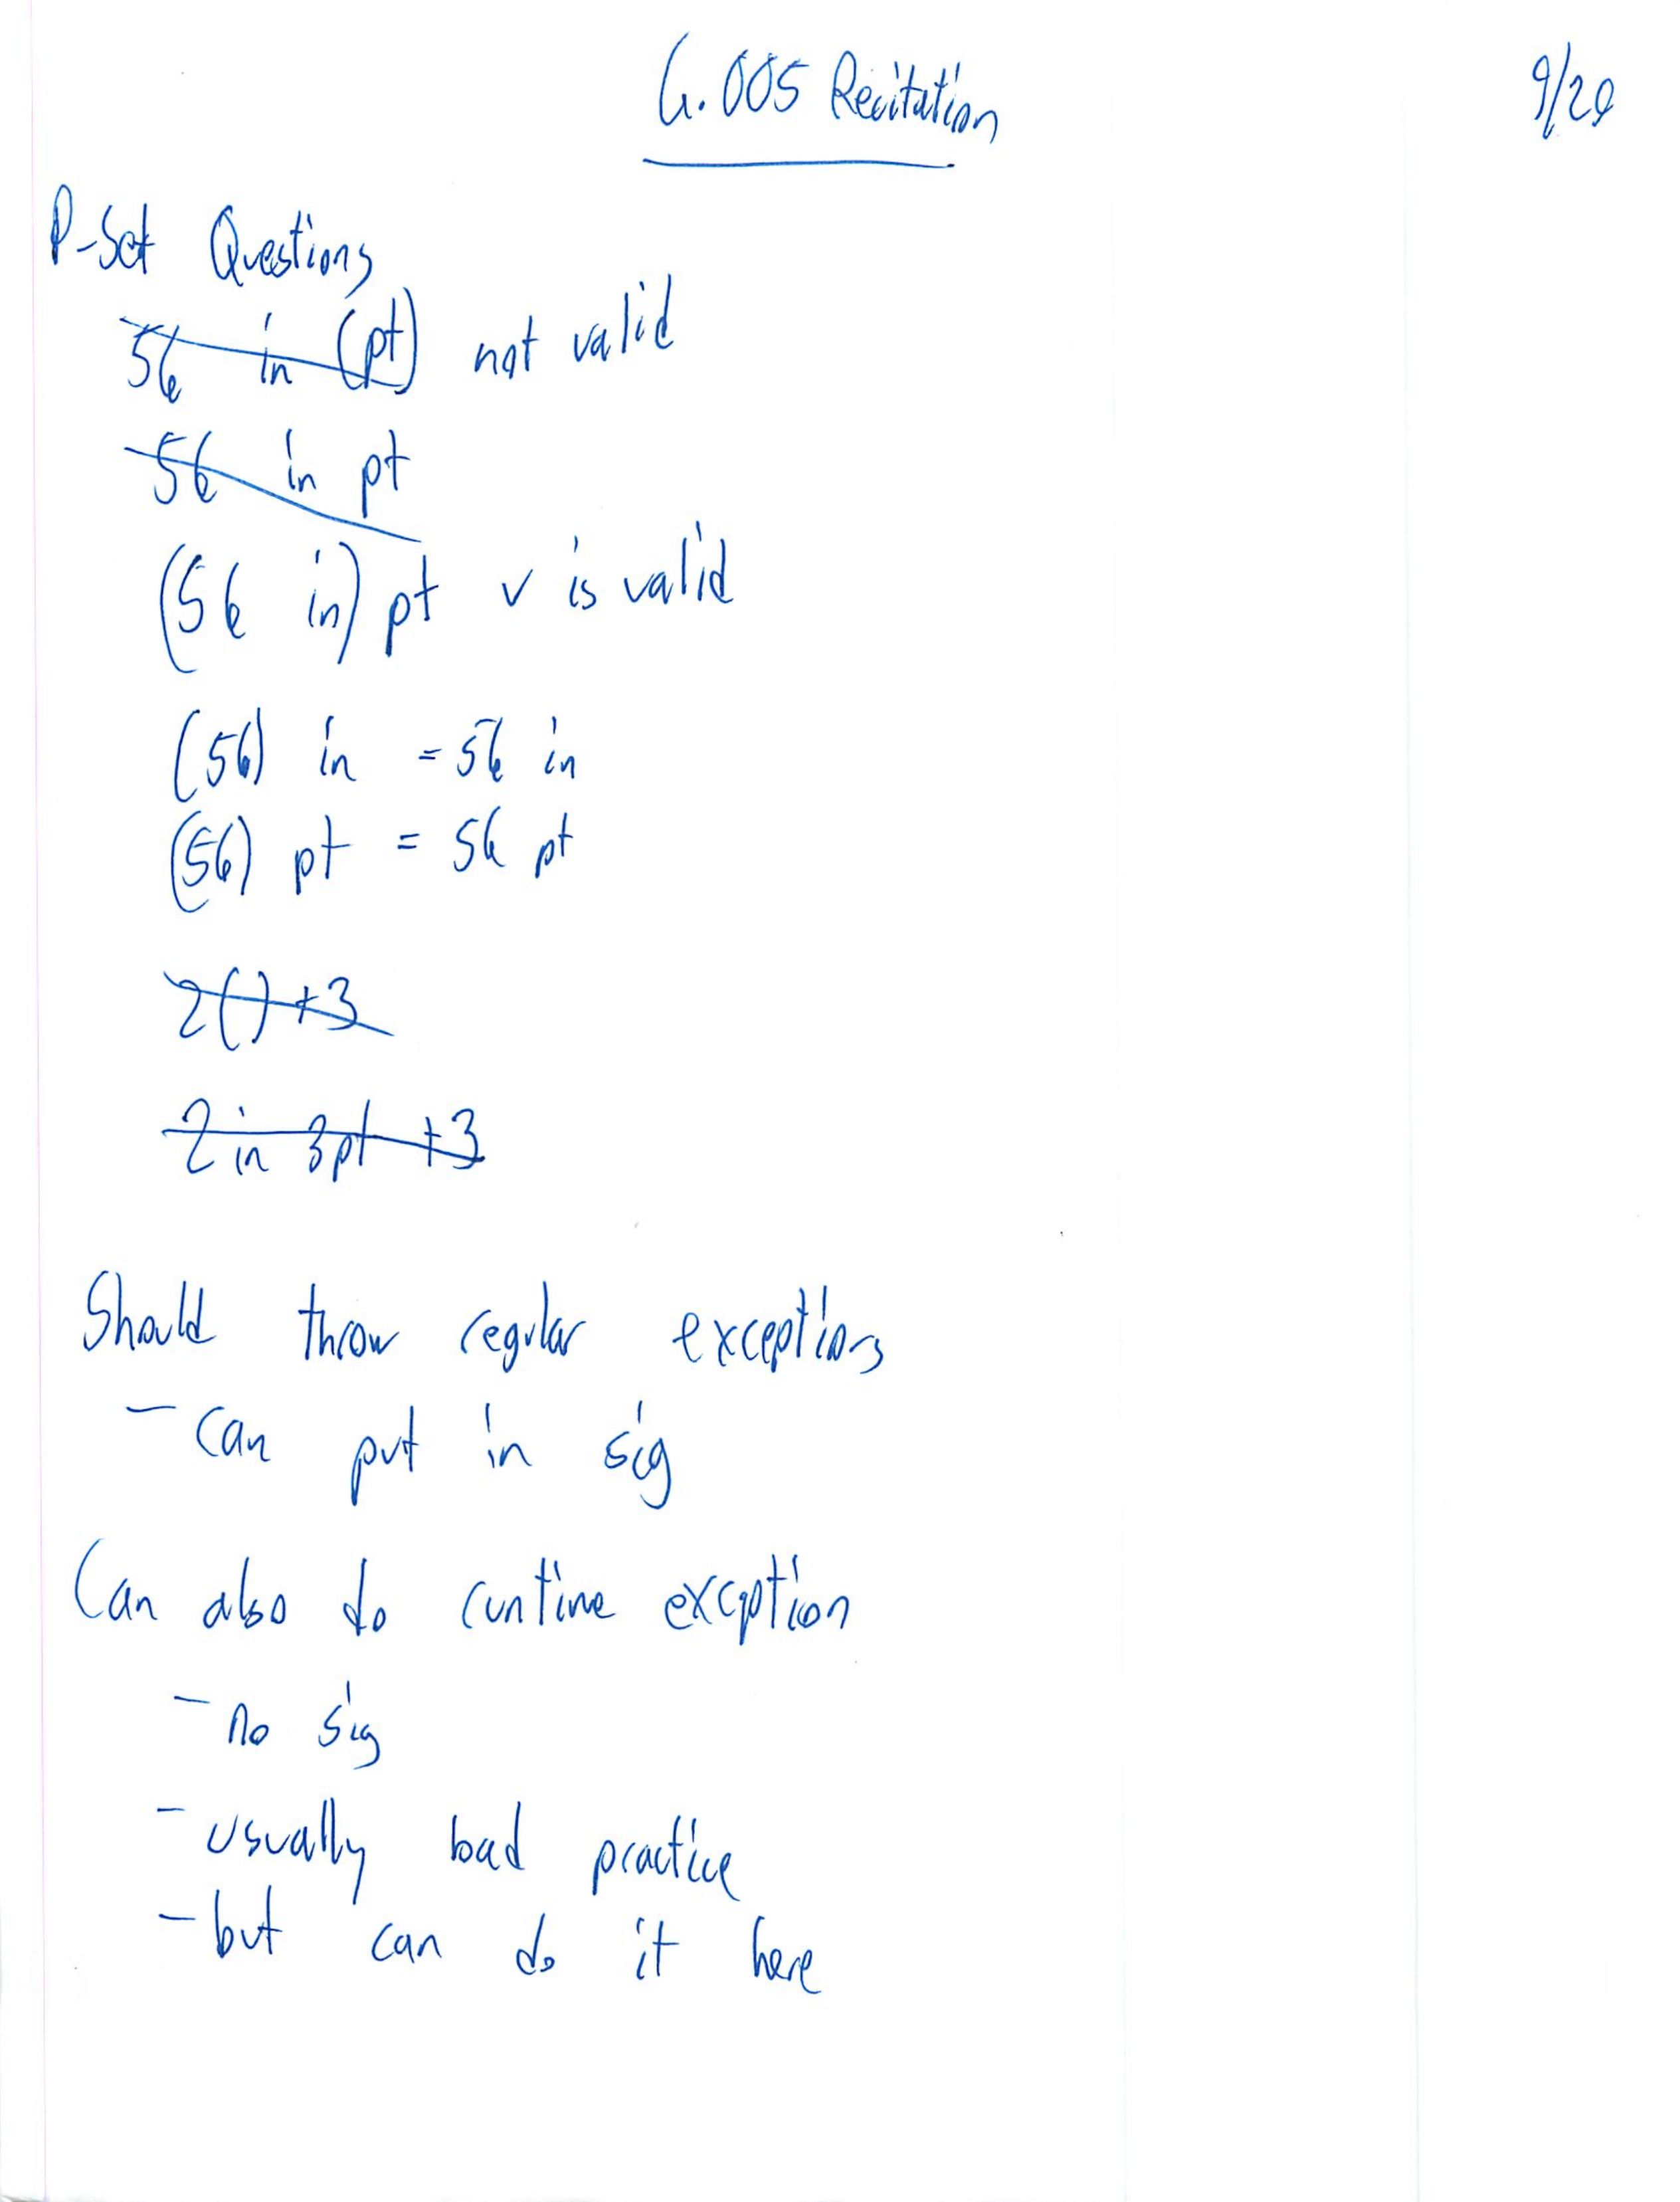 6.005 Recitation
9/28
P-Set Questions
56 in (pt) not valid
56 in pt
(56 in) pt v is valid
(56) in = 56 in
(56) pt = 56 pt
2()+3
2 in 3pt +3
Should throw regular exceptions
- can put in sig
Can also do runtime exception
- no sig
- usually bad practice
- but can do it here